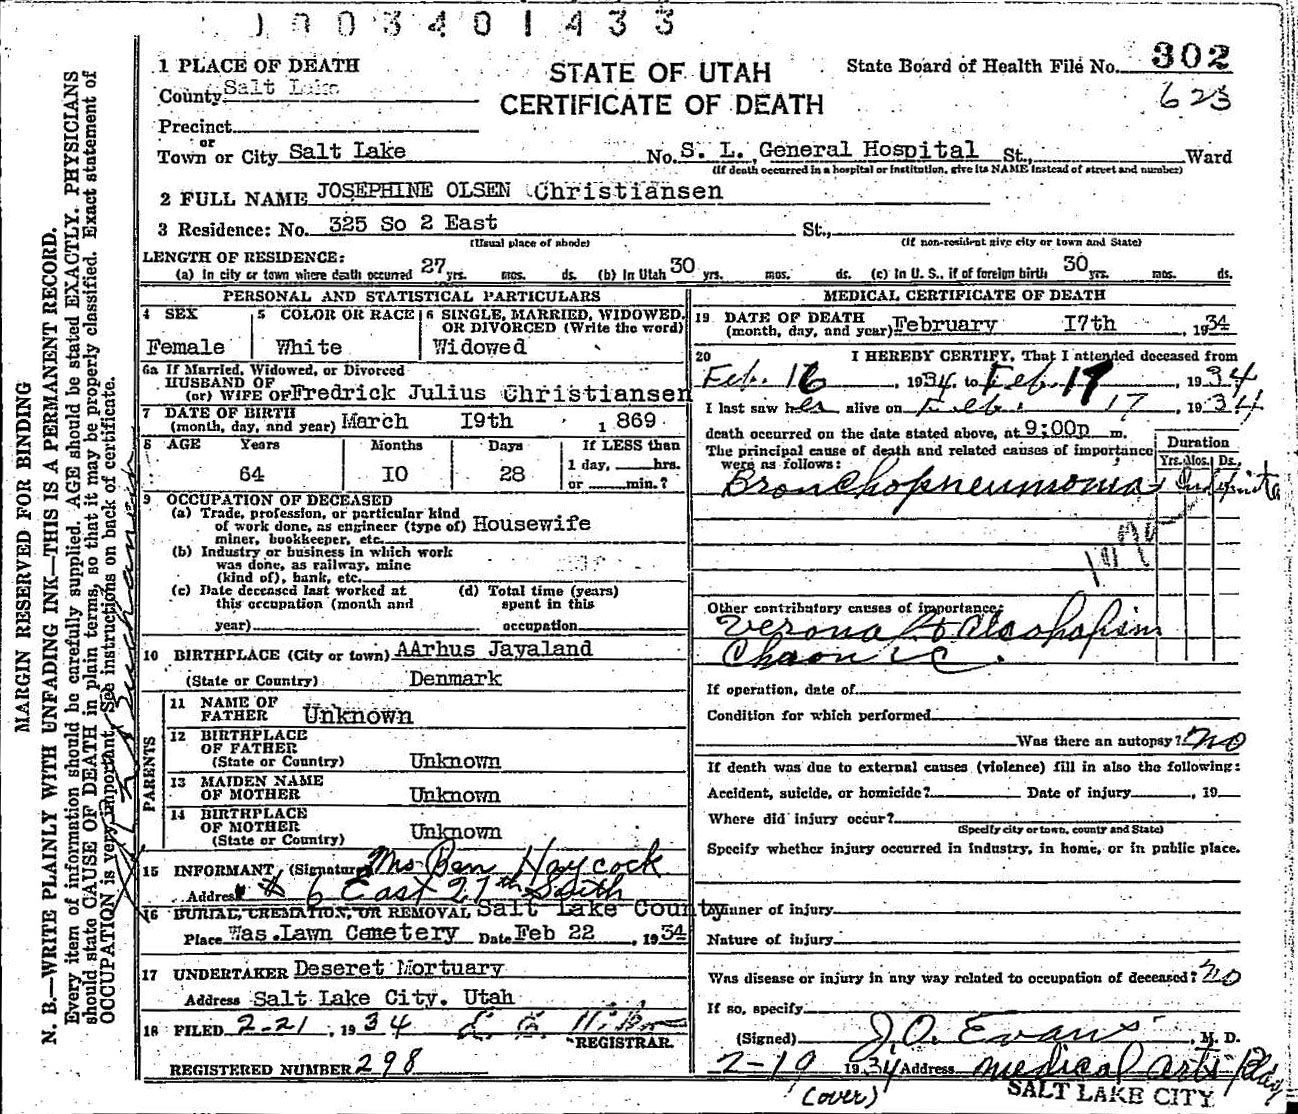 1003401433
1 PLACE OF DEATH
County Salt Lake
STATE OF UTAH
CERTIFICATE OF DEATH
State Board of Health File No. 302
623
Precinct
or
Town or City Salt Lake No. S. L. General Hospital St., Ward
(If death occurred in a hospital or institution, give its NAME instead of street and number)
2 FULL NAME JOSEPHINE OLSEN Christiansen
3 Residence: No. 325 So 2 East St.,
(Usual place of abode) (If non-resident give city or town and State)
LENGTH OF RESIDENCE:
(a) In city or town where death occurred 27 yrs. mos. ds. (b) In Utah 30 yrs. mos. ds. (c) In U. S., if of foreign birth 30 yrs. mos. ds.
PERSONAL AND STATISTICAL PARTICULARS
4 SEX 5 COLOR OR RACE 6 SINGLE, MARRIED, WIDOWED, OR DIVORCED (Write the word)
Female White Widowed
6a If Married, Widowed, or Divorced
HUSBAND OF
(or) WIFE OF Fredrick Julius Christiansen
7 DATE OF BIRTH
(month, day, and year) March I9th 1869
8 AGE Years Months Days If LESS than
64 IO 28 1 day, hrs.
or min.?
9 OCCUPATION OF DECEASED
(a) Trade, profession, or particular kind
of work done, as engineer (type of) Housewife
miner, bookkeeper, etc.
(b) Industry or business in which work
was done, as railway, mine
(kind of), bank, etc.
(c) Date deceased last worked at (d) Total time (years)
this occupation (month and spent in this
year) occupation
10 BIRTHPLACE (City or town) AArhus Jayaland
(State or Country) Denmark
PARENTS
11 NAME OF
FATHER Unknown
12 BIRTHPLACE
OF FATHER
(State or Country) Unknown
13 MAIDEN NAME
OF MOTHER Unknown
14 BIRTHPLACE
OF MOTHER
(State or Country) Unknown
15 INFORMANT (Signature) Mrs Ben Haycock
Address # 6 East 27th South
16 BURIAL, CREMATION, OR REMOVAL Salt Lake County
Place Was.Lawn Cemetery Date Feb 22, 1934
17 UNDERTAKER Deseret Mortuary
Address Salt Lake City. Utah
18 FILED 2-21, 1934
REGISTRAR.
REGISTERED NUMBER 298
MEDICAL CERTIFICATE OF DEATH
19 DATE OF DEATH
(month, day, and year) February I7th, 1934
20 I HEREBY CERTIFY, That I attended deceased from
Feb. 16, 1934, to Feb. 17, 1934
I last saw her alive on Feb. 17, 1934
death occurred on the date stated above, at 9:00p m.
The principal cause of death and related causes of importance
were as follows:
Duration
Yrs. Mos. Ds.
Bronchopneumonia
Other contributory causes of importance:
Veronal & Alcoholism
Chronic.
If operation, date of
Condition for which performed
Was there an autopsy? No
If death was due to external causes (violence) fill in also the following:
Accident, suicide, or homicide? Date of injury, 19
Where did injury occur?
(Specify city or town, county and State)
Specify whether injury occurred in industry, in home, or in public place.
Manner of injury
Nature of injury
Was disease or injury in any way related to occupation of deceased? No
If so, specify
(Signed) J.O. Evans, M. D.
2-19 1934 Address medical arts Bldg
(over) SALT LAKE CITY
MARGIN RESERVED FOR BINDING
N. B.—WRITE PLAINLY WITH UNFADING INK—THIS IS A PERMANENT RECORD.
Every item of information should be carefully supplied. AGE should be stated EXACTLY. PHYSICIANS
should state CAUSE OF DEATH in plain terms, so that it may be properly classified. Exact statement of
OCCUPATION is very important. See instructions on back of certificate.